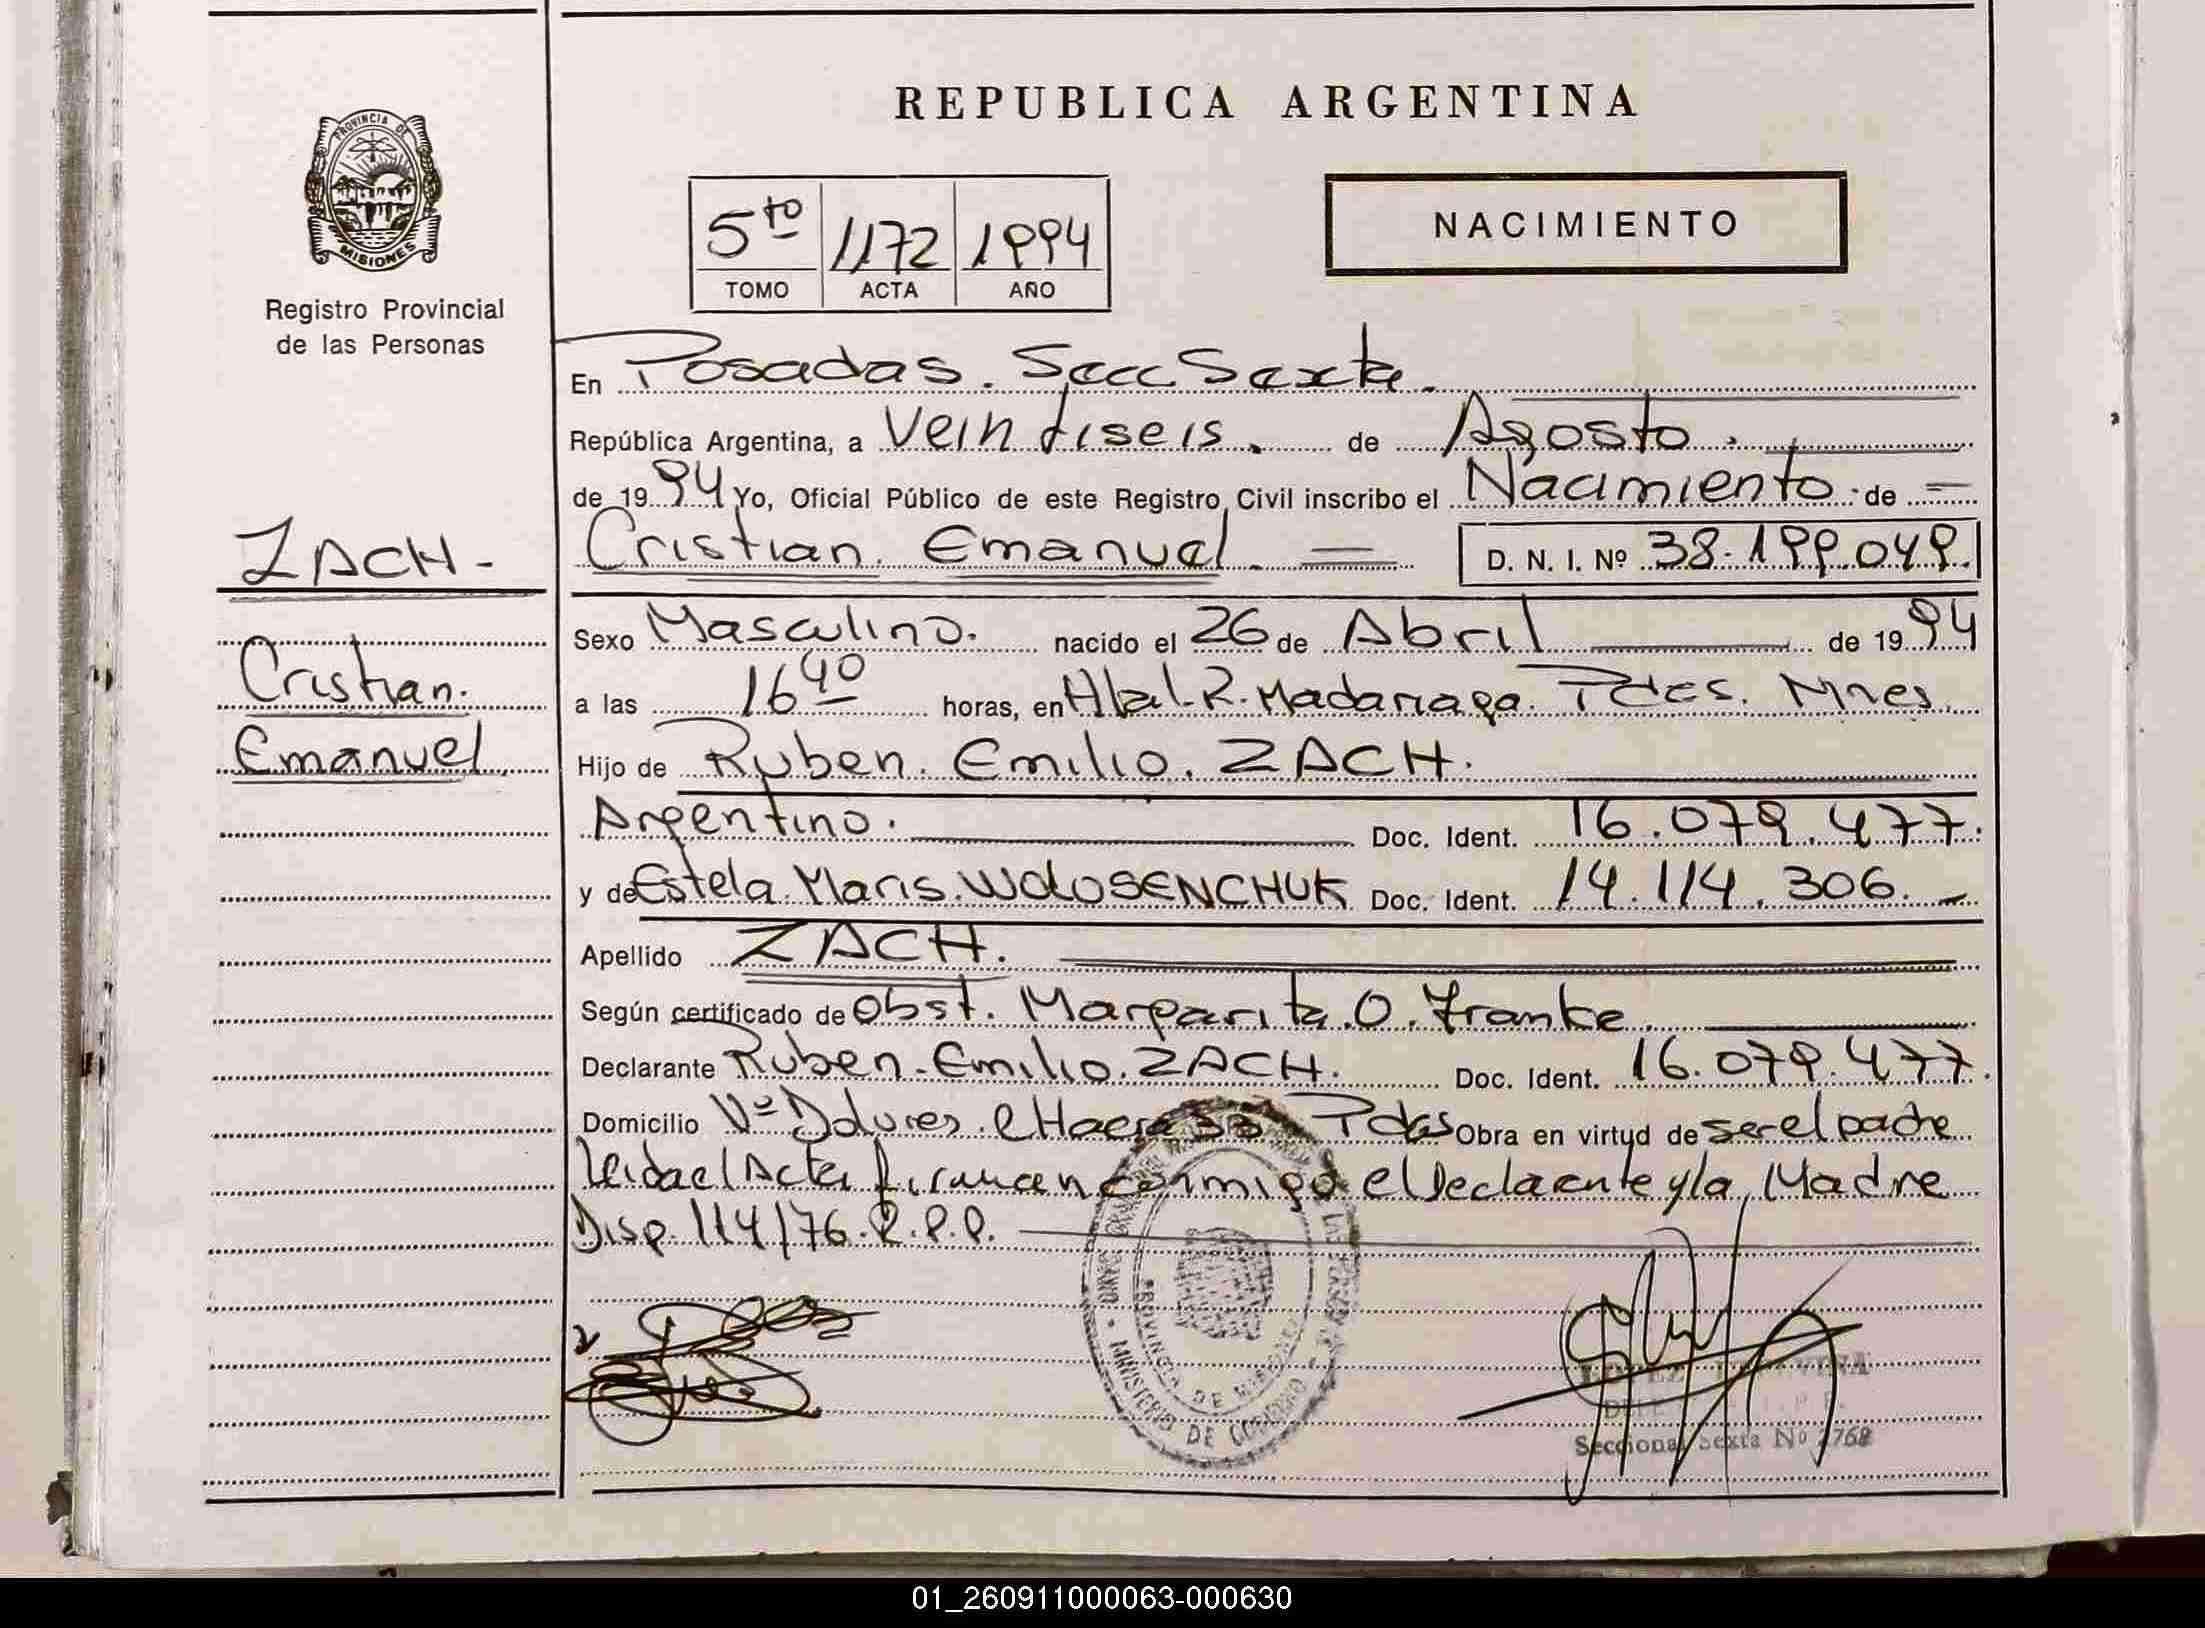 REPUBLICA ARGENTINA
PROVINCIA DE
MISIONES
Registro Provincial
de las Personas
5to 1172 1994
TOMO ACTA AÑO
NACIMIENTO
En Posadas. Secc Sexta.
República Argentina, a Veintiseis. de Agosto.
de 1994 Yo, Oficial Público de este Registro Civil inscribo el Nacimiento de
ZACH-
Cristian
Emanuel
Cristian Emanuel D. N. I. Nº 38.199.049.
Sexo Masculino. nacido el 26 de Abril de 1994
a las 16 40 horas, en Htal. R. Madariaga. Pdas. Mnes.
Hijo de Ruben Emilio ZACH.
Argentino. Doc. Ident. 16.079.477.
y de Estela Maris WOLOSENCHUK Doc. Ident. 14.114.306.
Apellido ZACH.
Según certificado de Obst. Margarita O. Franke
Declarante Ruben Emilio ZACH. Doc. Ident. 16.079.477.
Domicilio Vª Dolores Pdas Obra en virtud de ser el padre
Leida el Acta firman conmigo el Declarante y la Madre
Disp. 114/76. R.P.P.
PROVINCIA DE MISIONES
MINISTERIO DE GOBIERNO
Seccional Sexta Nº 2768